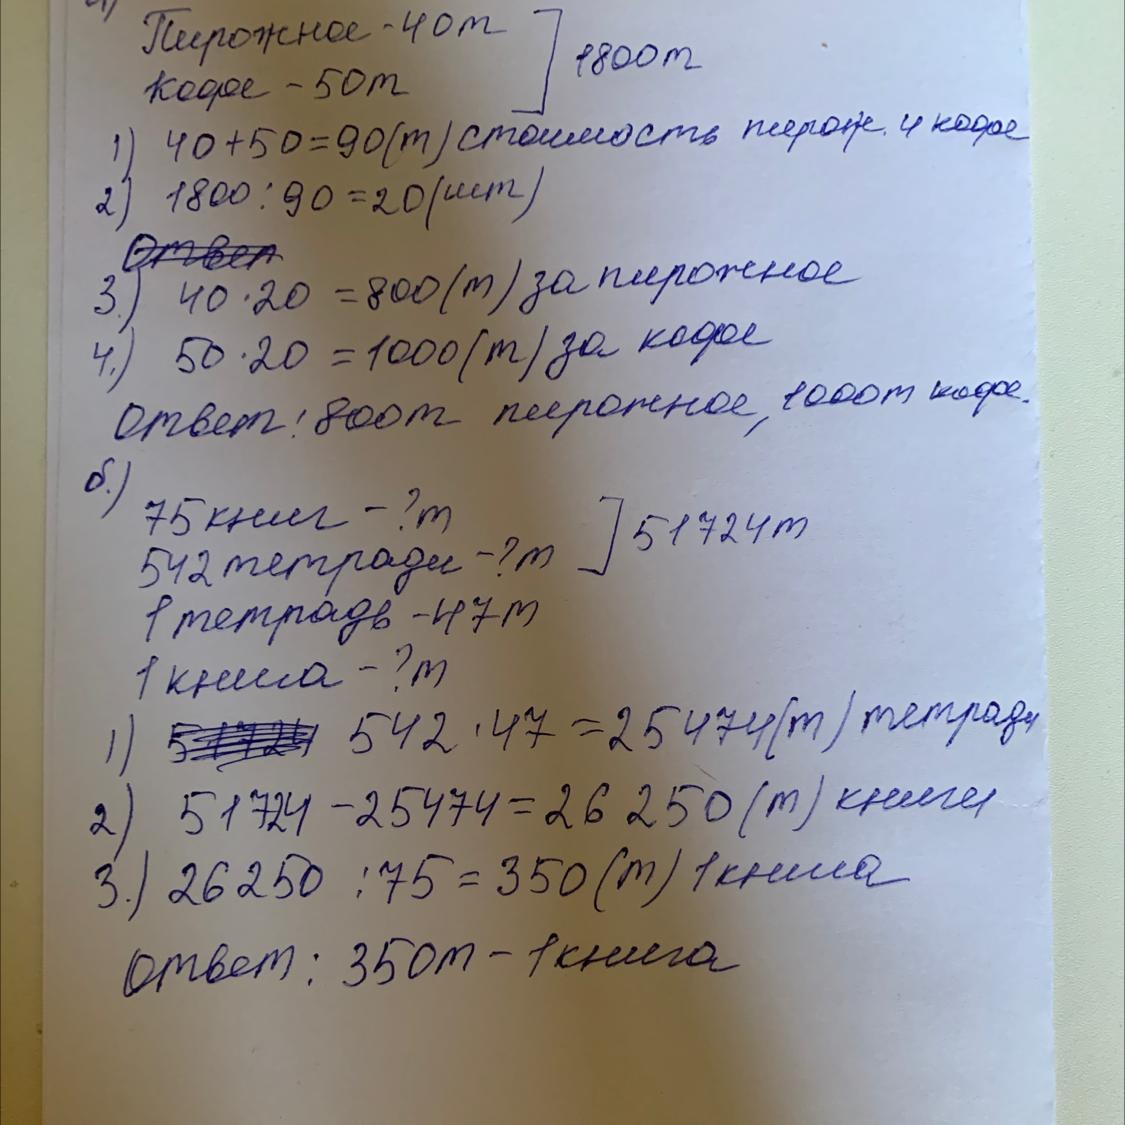 а)
Пирожное - 40т
Кофе - 50т ] 1800т
1) 40+50=90(т) стоимость пирож. и кофе
2) 1800:90=20(шт)
Ответ
3.) 40·20=800(т) за пирожное
4.) 50·20=1000(т) за кофе
Ответ: 800т пирожное, 1000т кофе.
б.)
75 книг - ?т
542 тетради - ?т ] 51724т
1 тетрадь - 47т
1 книга - ?т
1) 51724 542·47=25474(т) тетради
2) 51724-25474=26250(т) книги
3.) 26250:75=350(т) 1 книга
Ответ: 350т - 1 книга